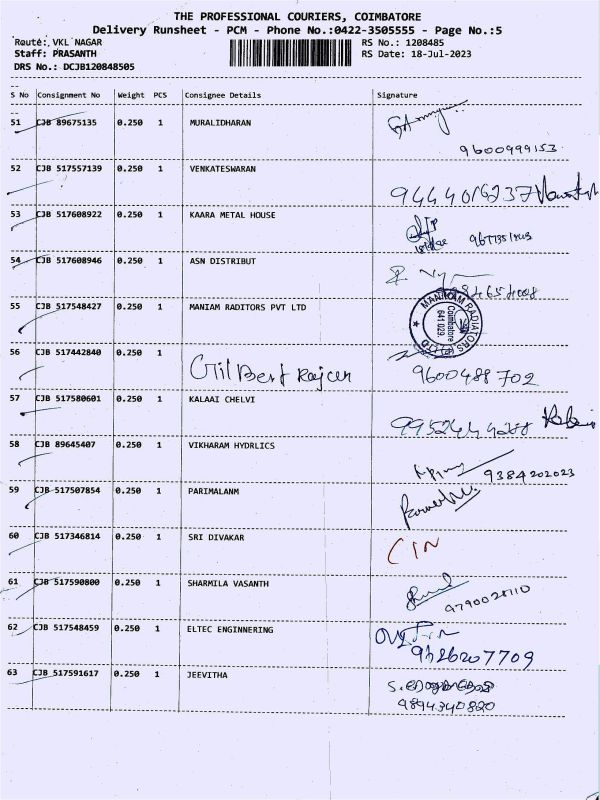 THE PROFESSIONAL COURIERS, COIMBATORE
Delivery Runsheet - PCM - Phone No.:0422-3505555 - Page No.:5
Route: VKL NAGAR RS No.: 1208485
Staff: PRASANTH RS Date: 18-Jul-2023
DRS No.: DCJB120848505
S No Consignment No Weight PCS Consignee Details Signature
51 CJB 89675135 0.250 1 MURALIDHARAN
9600999153
52 CJB 517557139 0.250 1 VENKATESWARAN
9444016237
53 CJB 517608922 0.250 1 KAARA METAL HOUSE
54 CJB 517608946 0.250 1 ASN DISTRIBUT
55 CJB 517548427 0.250 1 MANIAM RADITORS PVT LTD
MANIAM RADIATORS
Coimbatore
641 029
56 CJB 517442840 0.250 1 GilBert Rajan 9600488702
57 CJB 517580601 0.250 1 KALAAI CHELVI
58 CJB 89645407 0.250 1 VIKHARAM HYDRLICS
9384202023
59 CJB 517507854 0.250 1 PARIMALANM
60 CJB 517346814 0.250 1 SRI DIVAKAR
61 CJB 517590800 0.250 1 SHARMILA VASANTH
62 CJB 517548459 0.250 1 ELTEC ENGINNERING
63 CJB 517591617 0.250 1 JEEVITHA
9894340820